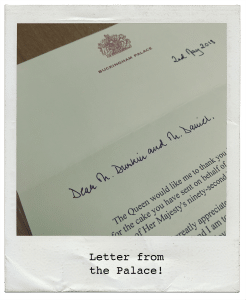 BUCKINGHAM PALACE
2nd May 2013
Dear M. Dunkin and M. Daniel.
The Queen would like me to thank you
for the cake you have sent on behalf of
of Her Majesty's ninety-second
greatly appreciate
and I am to
Letter from
the Palace!